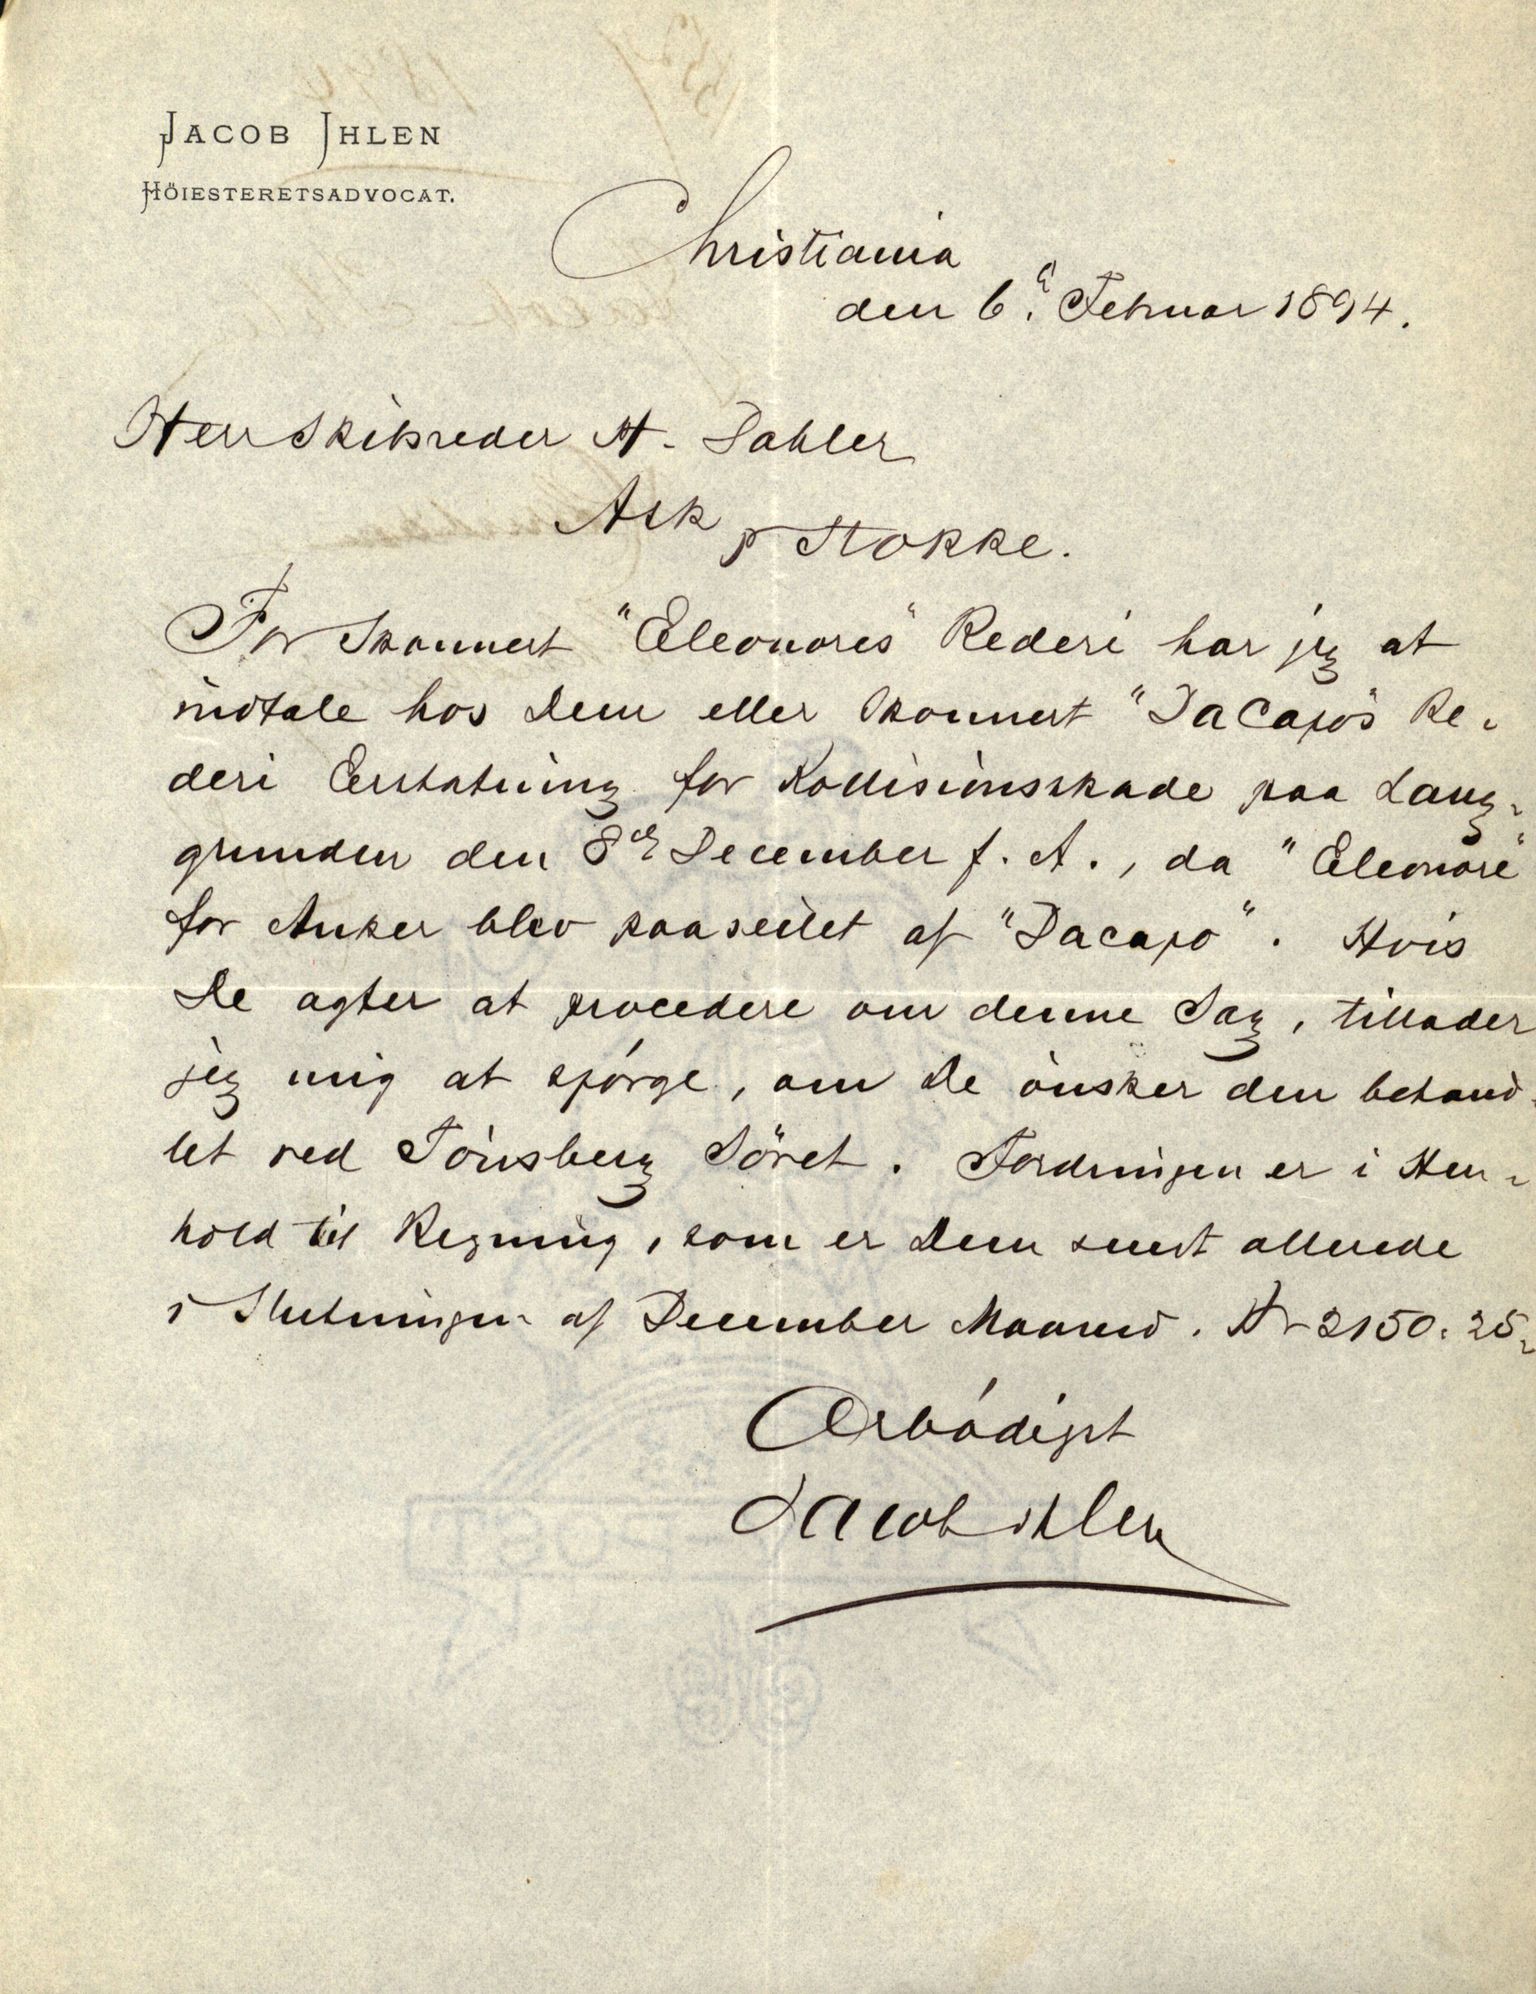 JACOB IHLEN
HÖIESTERETSADVOCAT.
Christiania
den 6.te Februar 1894.
Herr Skibsreder H. Dahler
Ask
pr Stokke.
For Skonnert "Eleonores" Rederi har jeg at
indtale hos Dem eller Skonnert "DaCapo's Re-
deri Erstatning for Kollisionsskade paa Lang-
grunden den 8de December f. A., da "Eleonore"
for Anker blev paaseilet af "Dacapo". Hvis
De agter at procedere om denne Sag, tillader
jeg mig at spørge, om De ønsker den behand-
let ved Tønsberg Söret. Fordringen er i Hen-
hold til Regning, som er Dem sendt allerede
i Slutningen af December Maaned. Kr 2150.25
Ærbødigst
Jacob Ihlen